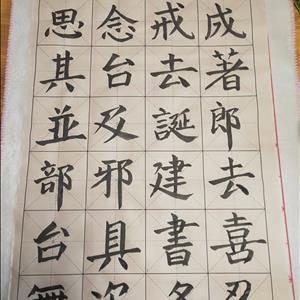 成著郎去喜
戒去誕建書
念台及邪具
思其並部台無